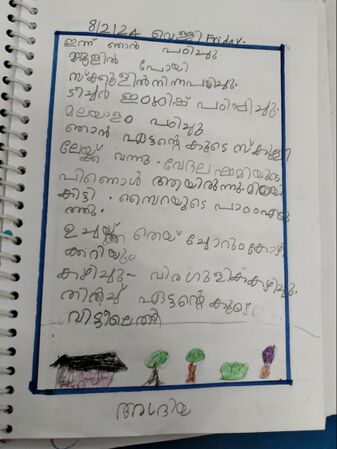 8/2/24 വെള്ളി Friday.
ഇന്ന് ഞാൻ പഠിച്ചു
സ്കൂളിൽ പോയി
സ്ക്കൂളിൽനിന്നപഠിച്ചു.
ടീച്ചർ ഇംഗ്ലീഷ് പഠിപ്പിച്ചു.
മലയാളം പഠിച്ചു
ഞാൻ ഏട്ടന്റെ കൂടെ സ്കൂളി
ലേയ്ക്ക് വന്നു. വേദലക്ഷ്മിയുടെ
പിറന്നാൾ ആയിരുന്നു. മിഠായി
കിട്ടി. സൈറയുടെ പാഠം
ത്തു.
ഉച്ചയ്ക്ക് നെയ് ച്ചോറുംകോഴി
ക്കറിയും
കഴിച്ചു- വിരഗുളികകഴിച്ചു.
തിരിച്ച് ഏട്ടന്റെ കൂടെ
വീട്ടിലെത്തി
അഗ്രിയ